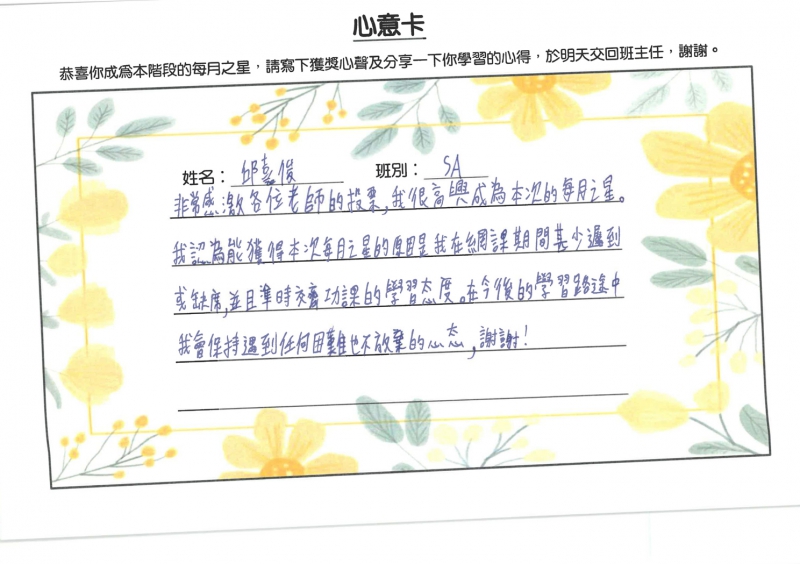 心意卡
恭喜你成為本階段的每月之星，請寫下獲獎心聲及分享一下你學習的心得，於明天交回班主任，謝謝。
姓名：邱嘉俊 班別：5A
非常感激各位老師的投票,我很高興成為本次的每月之星。
我認為能獲得本次每月之星的原因是我在網課期間甚少遲到
或缺席,並且準時交齊功課的學習态度。在今後的學習路途中
我會保持遇到任何困難也不放棄的心态,謝謝!